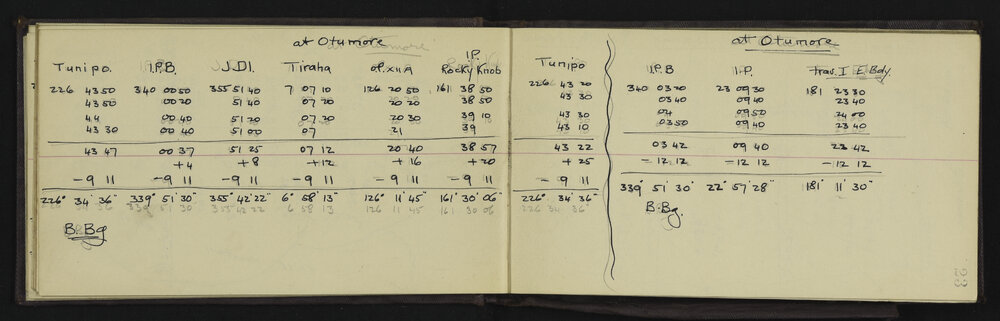 at Otumore
at Otumore
Tunipo. I.P.B. J.D1. Tiraha I.P. Rocky Knob Tunipo
I.P.B I.P. Trav. I E Bdy.
226 43 50 340 00 50 355 51 40 7 07 10 126 20 50 161 38 50 226 43 20
43 50 00 20 51 40 07 20 20 20 38 50 43 30
44 00 40 51 20 07 20 20 30 39 10 43 30
43 30 00 40 51 00 07 21 39 43 10
43 47 00 37 51 25 07 12 20 40 38 57 43 22
+4 +8 +12 +16 +20 +25
-9 11 -9 11 -9 11 -9 11 -9 11 -9 11 -9 11
226° 34' 36" 339° 51' 30" 355° 42' 22" 6° 58' 13" 126° 11' 45" 161° 30' 06 226° 34' 36"
B.Bg
340 03 20 23 09 30 181 23 30
03 40 09 40 23 40
04 09 50 24 00
03 50 09 40 23 40
03 42 09 40 23 42
-12 12 -12 12 -12 12
339° 51' 30" 22° 57' 28" 181° 11' 30"
B.Bg.
23